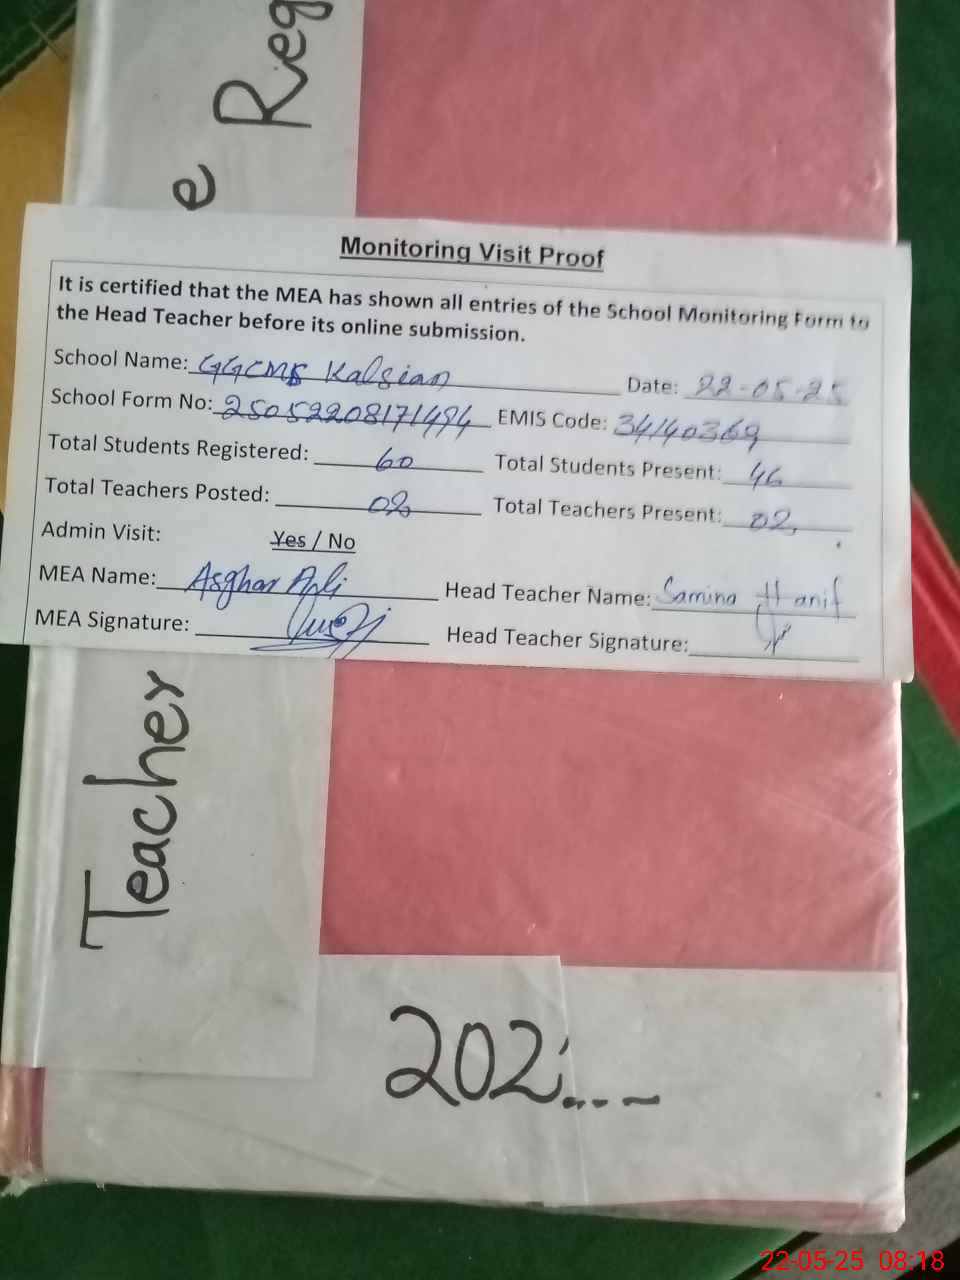 e Reg
Monitoring Visit Proof
It is certified that the MEA has shown all entries of the School Monitoring Form to
the Head Teacher before its online submission.
School Name: GGCMS Kalsian Date: 22-05-25
School Form No: 25052208171494 EMIS Code: 34140369
Total Students Registered: 60 Total Students Present: 46
Total Teachers Posted: 02 Total Teachers Present: 02
Admin Visit: Yes / No
MEA Name: Asghar Ali Head Teacher Name: Samina Hanif
MEA Signature: Head Teacher Signature:
Teacher
202
22-05-25 08:18